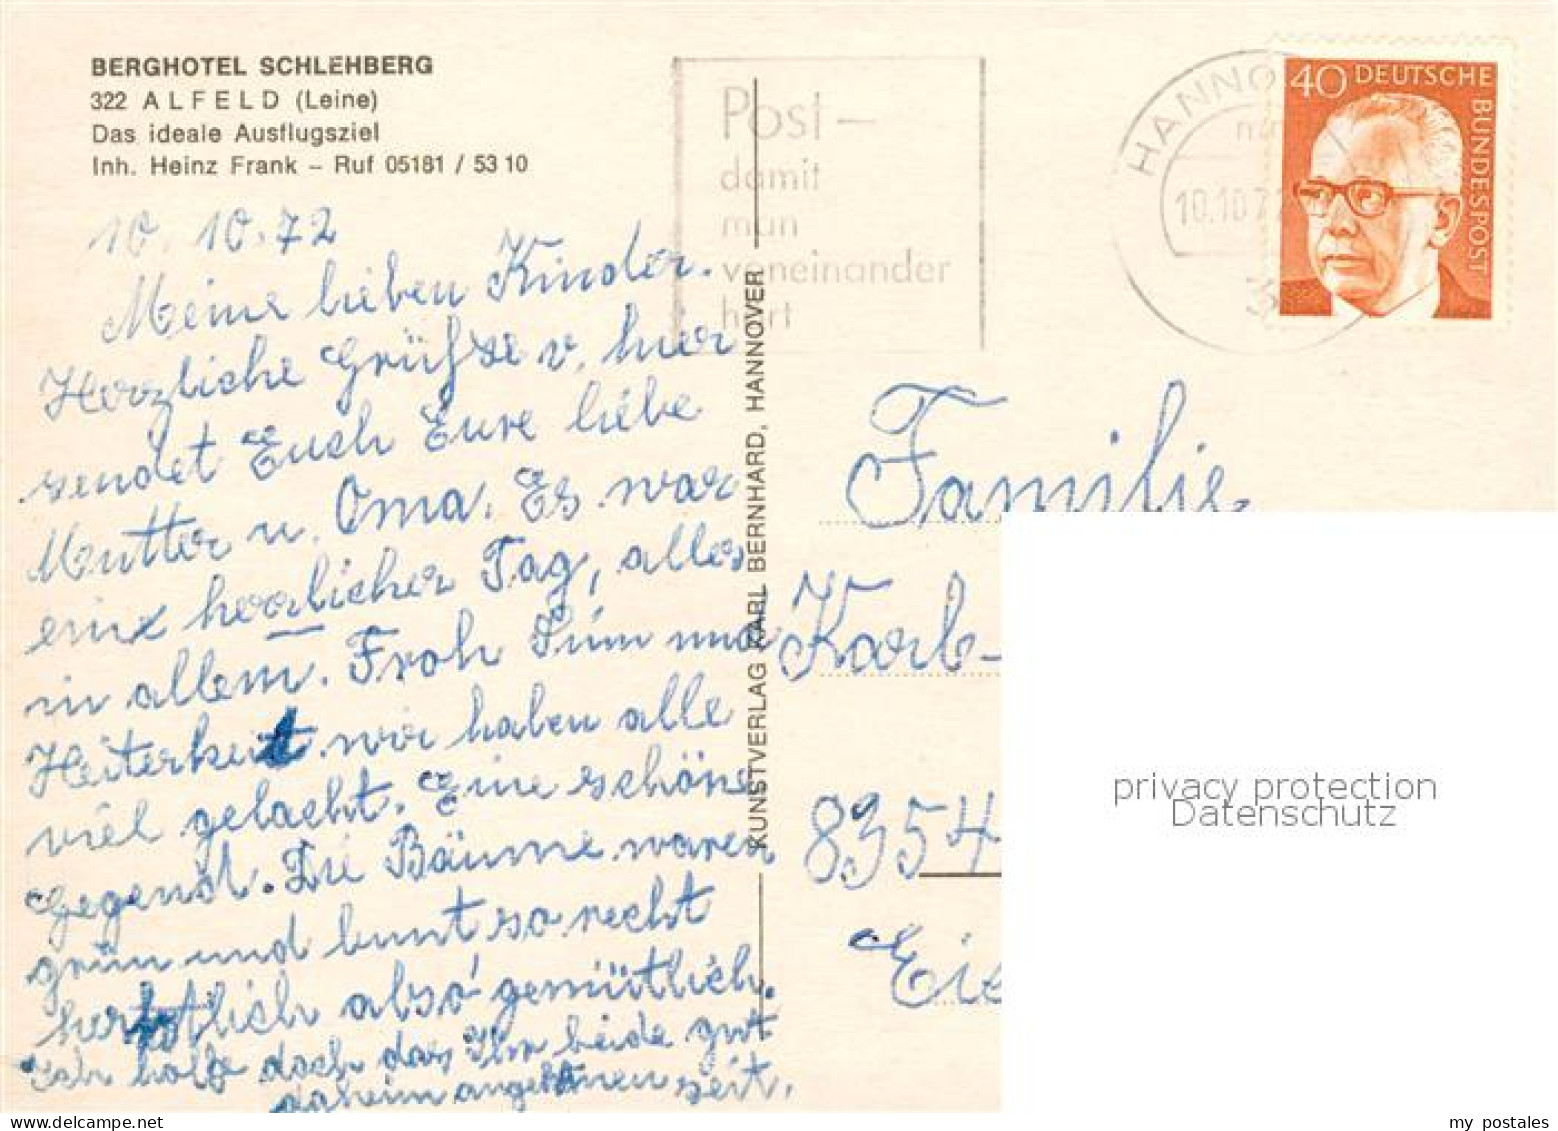 BERGHOTEL SCHLEHBERG
322 ALFELD (Leine)
Das ideale Ausflugsziel
Inh. Heinz Frank – Ruf 05181 / 53 10
10. 10. 72
Meine lieben Kinder.
Herzliche Grüße v. hier
sendet Euch Eure liebe
Mutter u. Oma. Es war
ein herrlicher Tag, alles
in allem. Froh Sinn und
Heiterkeit wir haben alle
viel gelacht. Eine schöne
Gegend. Die Bäume waren
grün und bunt so recht
herbstlich also gemütlich.
Ich hoffe doch das Ihr beide gut
daheim angekommen seit.
KUNSTVERLAG KARL BERNHARD, HANNOVER
Post –
damit
man
voneinander
hört
HANNO
10.10.72
3
40 DEUTSCHE
BUNDESPOST
Familie
Karl-
8354
Eie
privacy protection
Datenschutz
my postales